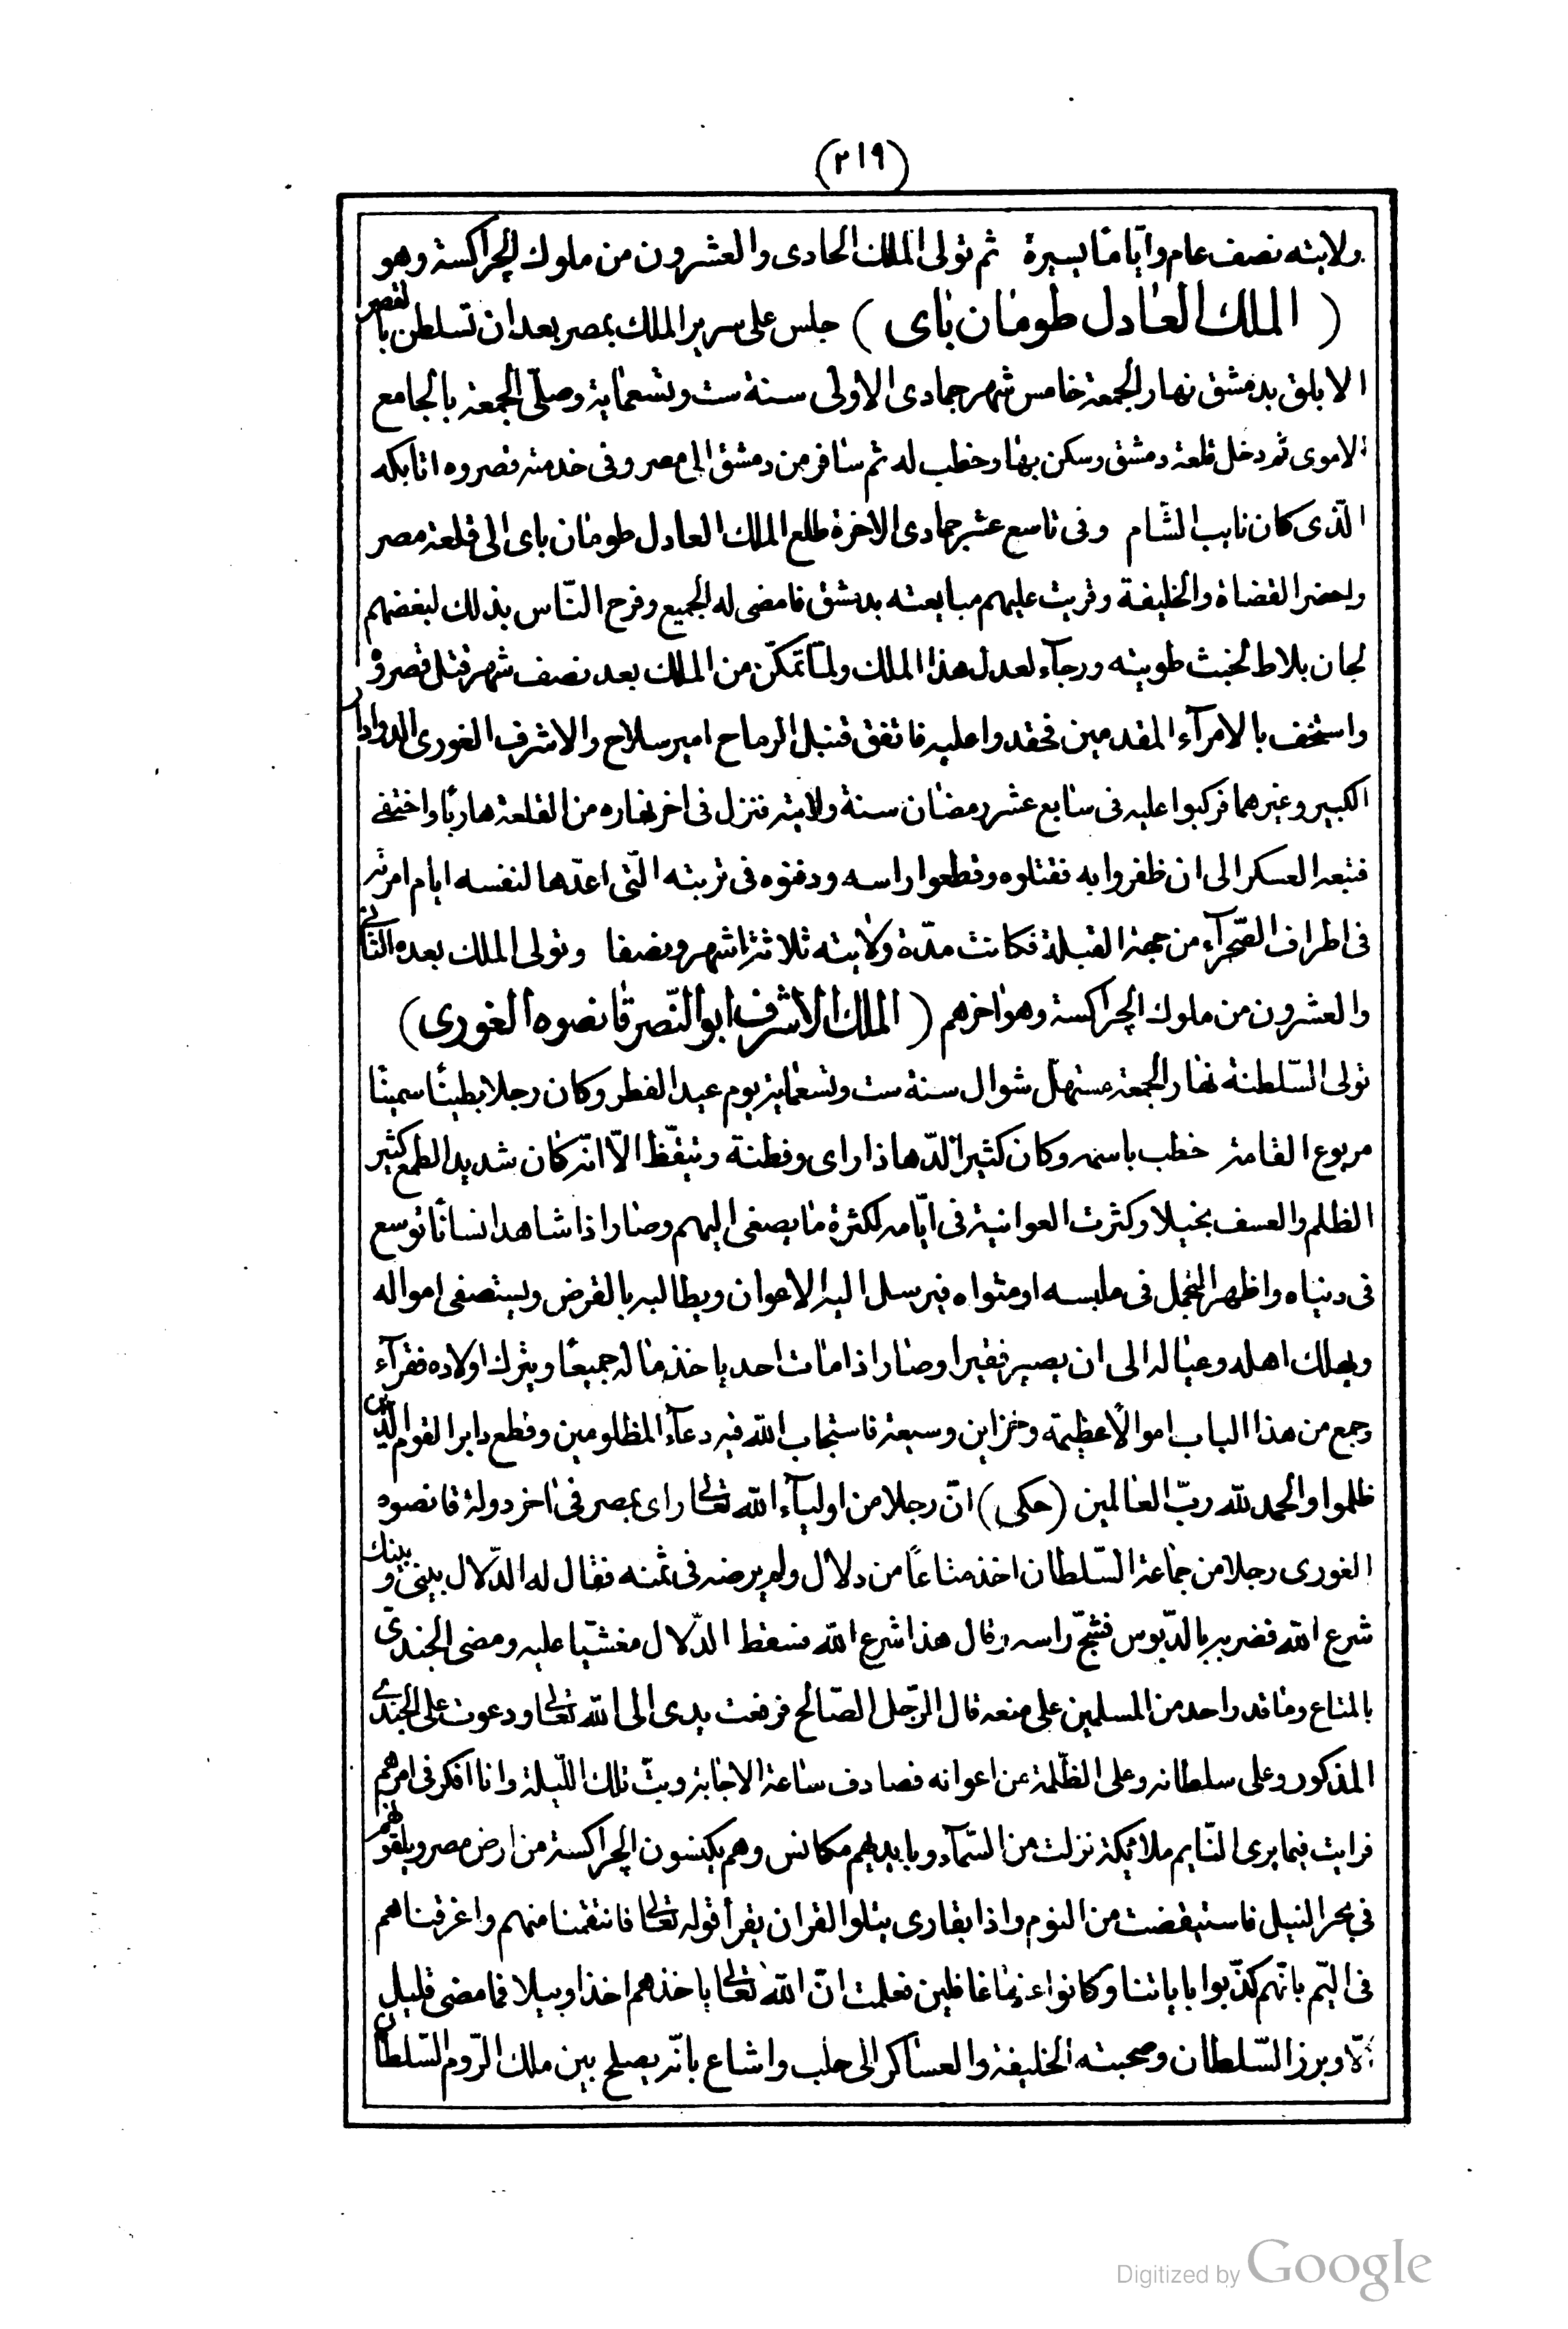 (٢١٩)
ولايته نصف عام واياما يسيرة ثم تولى الملك الحادى والعشرون من ملوك الچراكسة وهو
( الملك العادل طومان باى ) جلس على سرير الملك بمصر بعد ان تسلطن بالقصر
الابلق بدمشق نهار الجمعة خامس شهر جمادى الاولى سنة ست وتسعماية وصلّى الجمعة بالجامع
الاموى ثم دخل قلعة دمشق وسكن بها وخطب له ثم سافر من دمشق الى مصر وفى خدمته قصروه اتابكه
الّذى كان نايب الشام وفى تاسع عشر جمادى الاخرة طلع الملك العادل طومان باى الى قلعة مصر
واحضر القضاة والخليفة وقريت عليهم مبايعته بدمشق فامضى له الجميع وفرح النّاس بذلك لبغضهم
لجان بلاط لخبث طويته ورجآء لعدل هذا الملك ولمّا تمكّن من الملك بعد نصف شهر قتل قصروه
واستخف بالامرآء المقدمين فحقدوا عليه فاتفق قنبل الرماح امير سلاح والاشرف الغورى الدوادار
الكبير وغيرهما فركبوا عليه فى سابع عشر رمضان سنة ولايته فنزل فى اخر نهاره من القلعة هاربًا واختفى
فتبعه العسكر الى ان ظفروا به فقتلوه وقطعوا راسه ودفنوه فى تربته الّتى اعدّها لنفسه ايام امرته
فى اطراف الصّحرآء من جهة القبلة فكانت مدّة ولايته ثلاثة اشهر ونصفا وتولى الملك بعده الثانى
والعشرون من ملوك الچراكسة وهو اخرهم ( الملك الاشرف ابو النّصر قانصوه الغورى )
تولى السّلطنة نهار الجمعة مستهلّ شوال سنة ست وتسعماية يوم عيد الفطر وكان رجلا بطينًا سمينًا
مربوع القامة خطب باسمه وكان كثير الدّها ذا راى وفطنة وتيقّظ الاّ انّه كان شديد الطمع كثير
الظلم والعسف بخيلا وكثرت العوانية فى ايّامه لكثرة ما يصغى اليهم وصار اذا شاهد انسانًا توسع
فى دنياه واظهر التجمل فى ملبسه او مثواه فيرسل اليه الاعوان ويطالبه بالقرض ويستصفى امواله
ويهلك اهله وعياله الى ان يصير فقيرا وصار اذا مات احد ياخذ ماله جميعًا ويترك اولاده فقرآء
وجمع من هذا الباب اموالًا عظيمة وخزاين وسيعة فاستجاب الله فيه دعآء المظلومين وقطع دابر القوم الّذين
ظلموا والحمد لله ربّ العالمين (حكى) انّ رجلا من اوليآء الله تعالى راى بمصر فى اخر دولة قانصوه
الغورى رجلا من جماعة السّلطان اخذ متاعًا من دلال ولم يرضه فى ثمنه فقال له الدّلال بينى وبينك
شرع الله فضربه بالدّبوس فشجّ راسه وقال هذا شرع الله فسقط الدّلال مغشيّا عليه ومضى الجندىّ
بالمتاع وما قدر واحد من المسلمين على منعه قال الرّجل الصّالح فرفعت يدى الى الله تعالى ودعوت على الجندى
المذكور وعلى سلطانه وعلى الظّلمة من اعوانه فصادف ساعة الاجابة وبتّ تلك اللّيلة وانا افكر فى امرهم
فرايت فيما يرى النّايم ملائيكة نزلت من السّمآء وبايديهم مكانس وهم يكنسون الچراكسة من ارض مصر ويلقونهم
فى بحر النيل فاستيقضت من النوم واذا بقارى يتلوا القران يقرأ قوله تعالى فانتقمنا منهم واغرقناهم
فى اليّم بانّهم كذّبوا باياتنا وكانوا عنها غافلين فعلمت انّ الله تعالى ياخذهم اخذا وبيلا فما مضى قليل
الّا وبرز السّلطان وصحبته الخليفة والعساكر الى حلب واشاع بانّه يصلح بين ملك الرّوم السّلطان
Digitized by Google